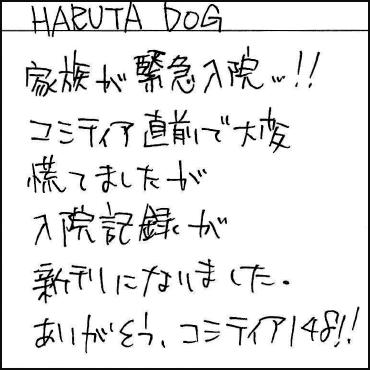 HARUTA DOG
家族が緊急入院…!!
コミティア直前で大変
慌てましたが
入院記録が
新刊になりました。
ありがとう、コミティア148!!